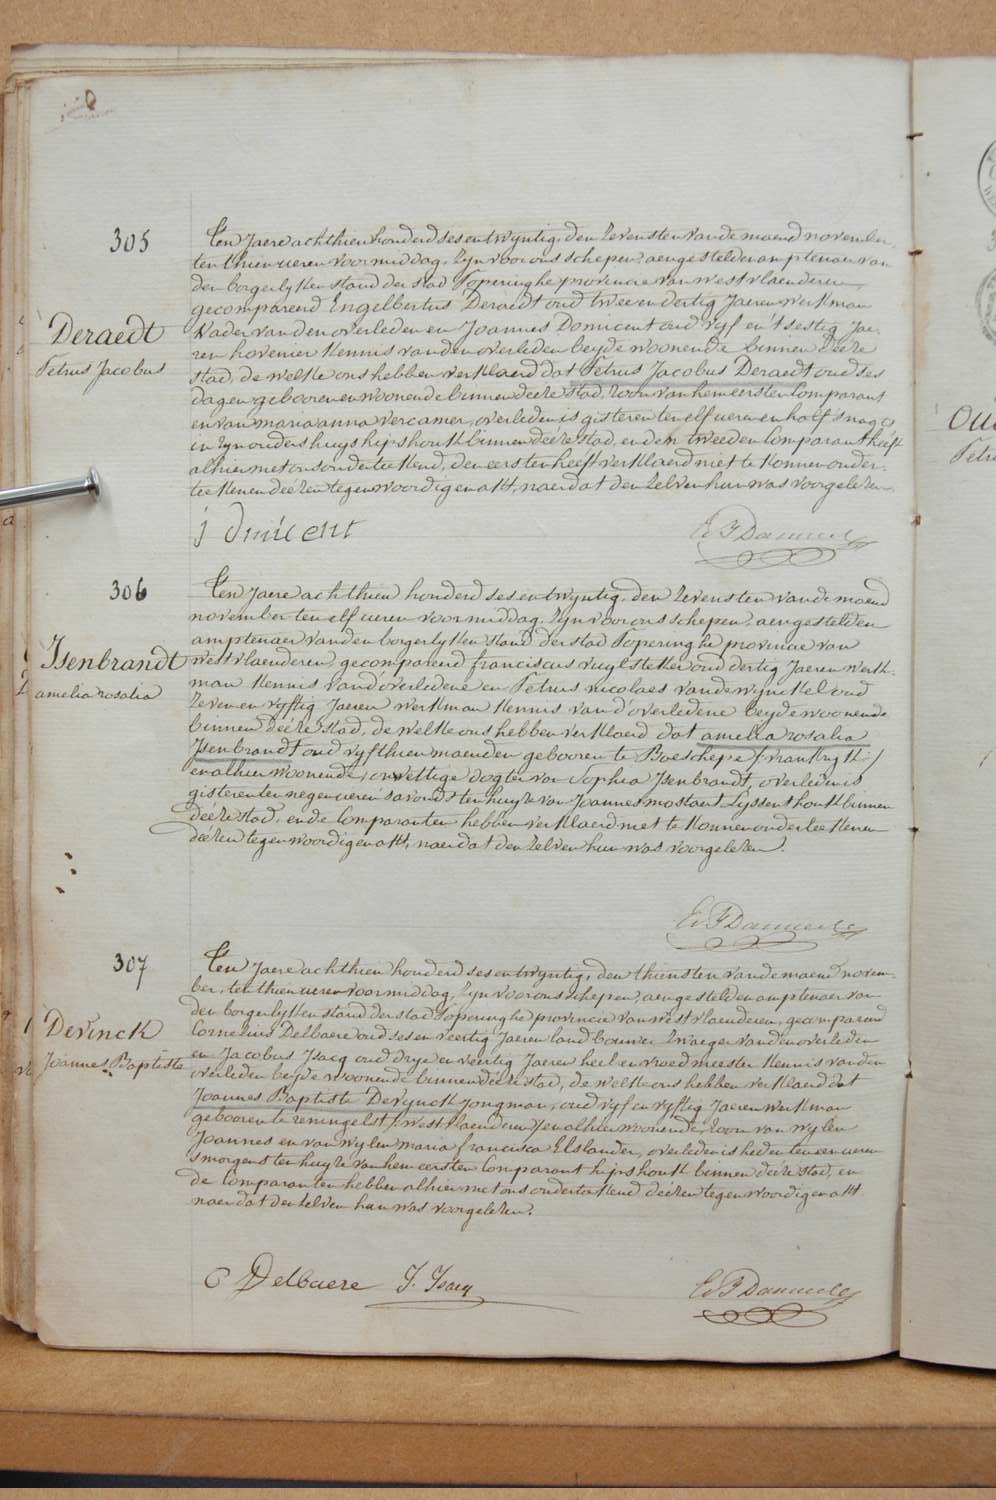 305
Deraedt
Petrus Jacobus
Ten Jaere achthien honderd ses en twyntig, den Zevensten van de maend november,
ten thien ueren voormiddag, Zyn voor ons schepen, aengestelden amptenaer van
den borgerlyken stand der stad Poperinghe provincie van westvlaenderen,
gecompareerd Engelbertus Deraedt oud twee en dertig Jaeren werkman
Vader van den overleden en Joannes Domicent oud vyf en 't sestig Jae-
ren hovenier Kennis van den overleden beyde woonende binnen deéze
stad, de welke ons hebben verklaerd dat Petrus Jacobus Deraedt oud ses
dagen gebooren en woonende binnen deéze stad, zoon van hem eersten Comparant
en van maria anna vercamer, overleden is gisteren ten elf ueren en half s'nagts
in Zyn ouders huys hipshouk binnen deéze stad, en den tweeden Comparant heeft
alhier met ons onderteekend, den eersten heeft verklaerd niet te konnen onder-
teekenen deézen tegenwoordigen akt, naer dat den zelven hun was voorgelezen.
j dmicent
306
Isenbrandt
amelia rosalia
Ten Jaere achthien honderd ses en twyntig, den Zevensten van de maend
november ten elf ueren voormiddag, Zyn voor ons schepen, aengestelden
amptenaer van den borgerlyken stand der stad Poperinghe provincie van
westvlaenderen, gecompareerd franciscus ruyssteker oud dertig Jaeren werk-
man Kennis van d'overledene en Petrus nicolaes vandewynckel oud
Zeven en vyftig Jaeren werkman Kennis van d'overledene beyde woonende
binnen deéze stad, de welke ons hebben verklaerd dat amelia rosalia
Isenbrandt oud vyfthien maenden gebooren te Boeschepe /vrankryk/
en alhier woonende, onwettige dogter van Sophia Isenbrandt, overleden is
gisteren ten negen ueren s'avonds ten huyze van Joannes mostaert Lyssenthouk binnen
deéze stad, en de Comparanten hebben verklaerd niet te konnen onderteekenen
deézen tegenwoordigen akt, naer dat den zelven hun was voorgelezen.
307
Devinck
Joannes Baptiste
Ten Jaere achthien honderd ses en twyntig, den thiensten van de maend novem-
ber, ten thien ueren voormiddag, Zyn voor ons schepen, aengestelden amptenaer van
den borgerlyken stand der stad Poperinghe provincie van westvlaenderen, gecompareerd
Cornelius Delbaere oud ses en veertig Jaeren landbouwer Zwaeger van den overleden
en Jacobus Isacq oud drye en veertig Jaeren heel en vroedmeester Kennis van den
overleden beyde woonende binnen deéze stad, de welke ons hebben verklaerd dat
Joannes Baptiste Devynck jongman, oud vyf en vyftig Jaeren werkman
gebooren te reningelst /westvlaenderen/ en alhier woonende, zoon van wylen
Joannes en van wylen maria francisca Elslander, overleden is heden ten een ueren
s'morgens ten huyze van hem eersten Comparant hipshouk binnen deéze stad, en
de Comparanten hebben alhier met ons onderteekend deézen tegenwoordigen akt
naer dat den zelven hun was voorgelezen.
C Delbaere J. Isacq